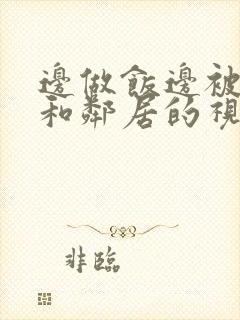 邊做飯邊被
和鄰居的視
非臨